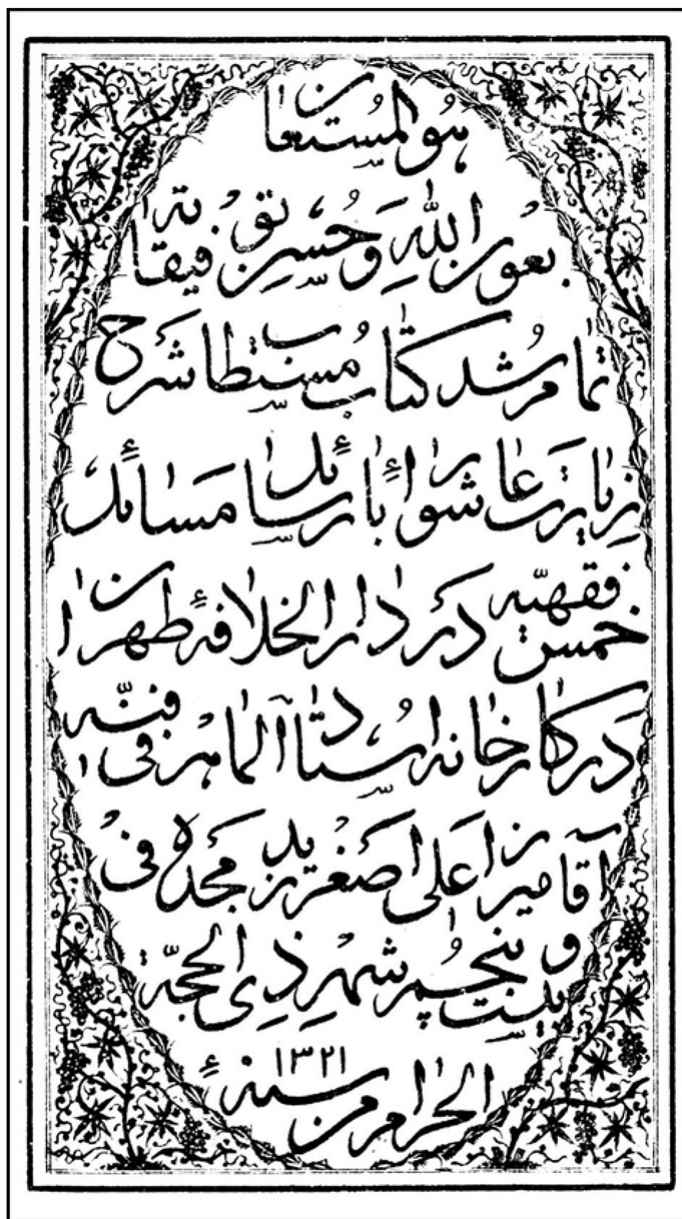 هُوَ المُستَعان
بعَونِ اللهِ وَحُسنِ تَوفيقاتِه
تمام شد کتاب مُستَطاب شَرح
زیارَت عاشورا با رَسائل مَسائل
خمس فقهیّه دَر دار الخلافهٔ طهران
دَر کارخانه اُستاد الماهر فی فنّه
آقا میرزا علی اصغر زید مَجده فی
بیست و پنجم شهر ذِی الحجّة
الحرام من سنهٔ ۱۳۲۱